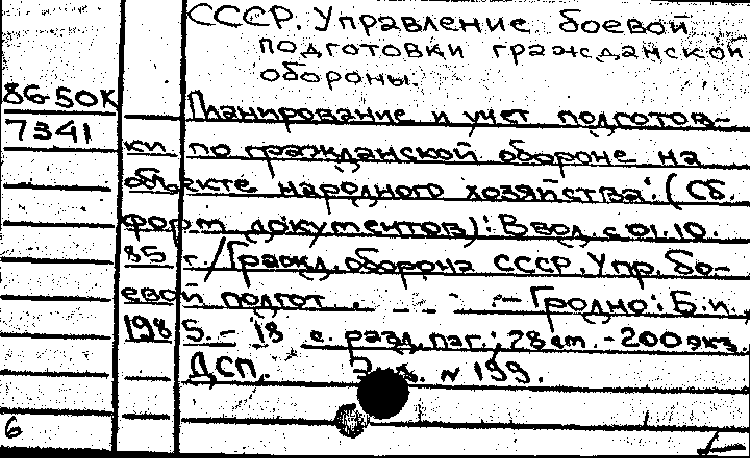 СССР. Управление боевой
подготовки гражданской
обороны.
86-50К
7341
Планирование и учет подготов-
ки по гражданской обороне на
объекте народного хозяйства: (Сб.
форм документов): Ввод. с 01.10.
85 г. / Гражд. оборона СССР. Упр. бо-
евой подгот. - Гродно: Б.и.,
1985. - 18 с. разд. паг.; 28 см. - 200 экз.
ДСП. № 199.
6